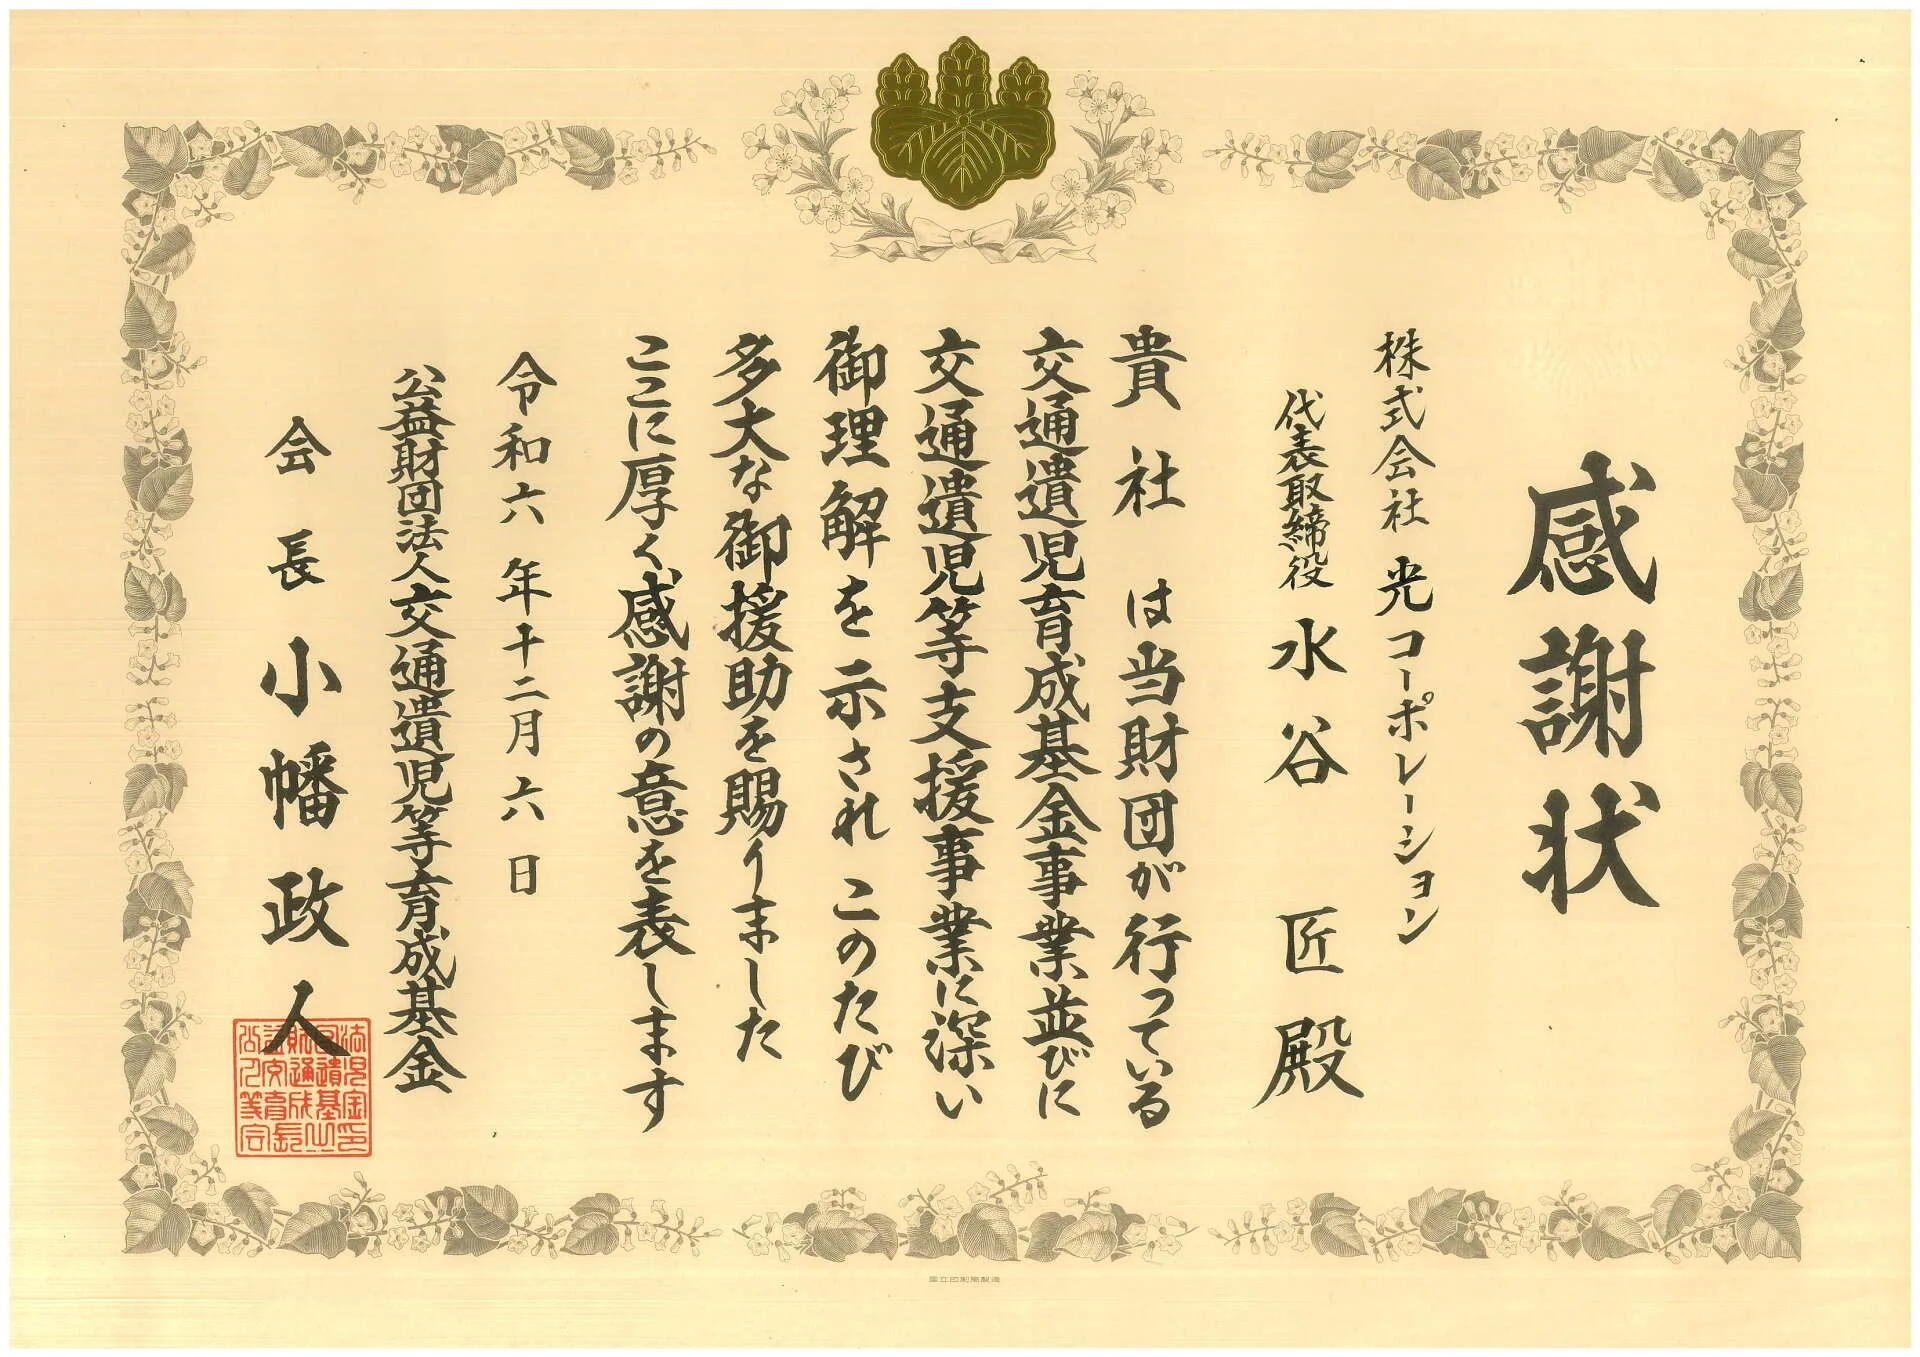 感謝状
株式会社 光コーポレーション
代表取締役 水谷 匠 殿
貴社は当財団が行っている
交通遺児育成基金事業並びに
交通遺児等支援事業に深い
御理解を示され このたび
多大な御援助を賜りました
ここに厚く感謝の意を表します
令和六年十二月六日
公益財団法人交通遺児等育成基金
会長 小幡政人
国立印刷局製造